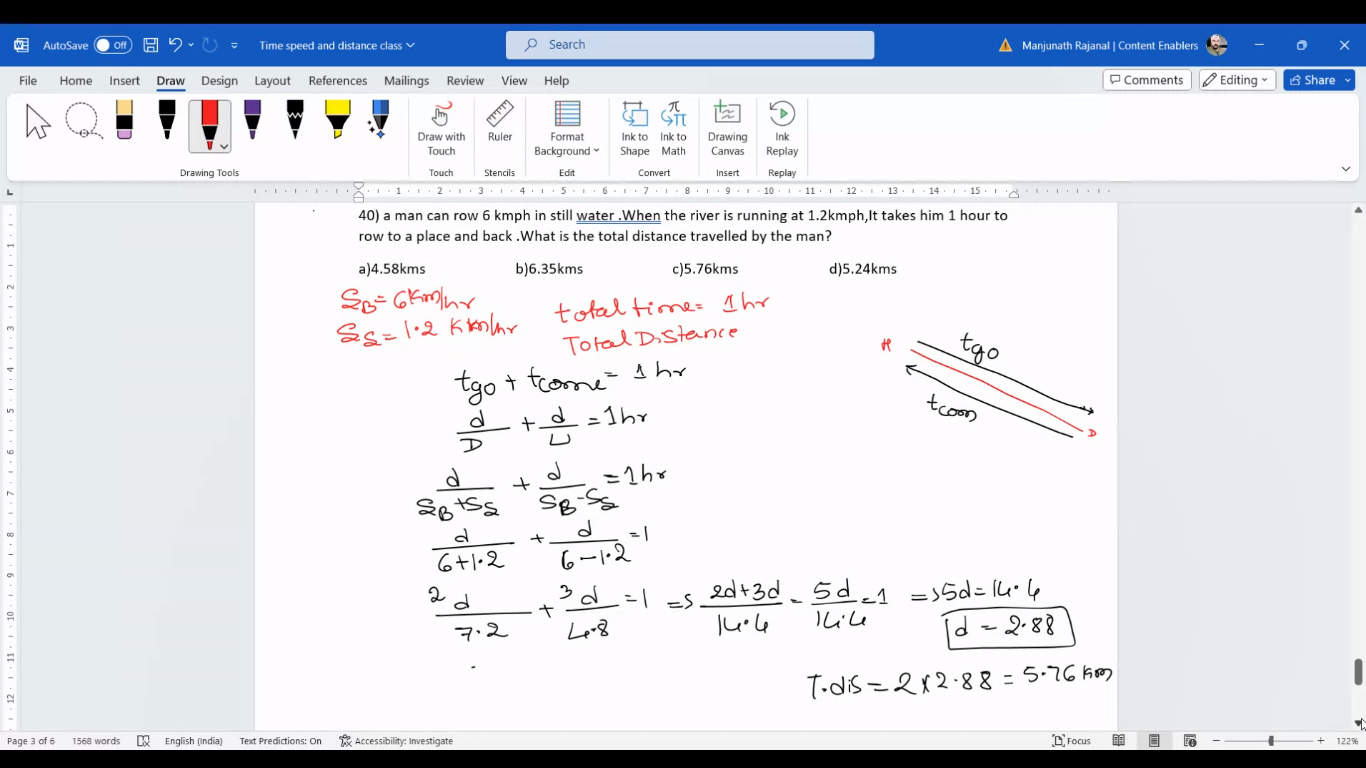 AutoSave Off Time speed and distance class Search Manjunath Rajanal | Content Enablers
File Home Insert Draw Design Layout References Mailings Review View Help Comments Editing Share
Draw with Touch Ruler Format Background Ink to Shape Ink to Math Drawing Canvas Ink Replay
Drawing Tools Touch Stencils Edit Convert Insert Replay
1 2 3 4 5 6 7 8 9 10 11 12 13 14 15
40) a man can row 6 kmph in still water .When the river is running at 1.2kmph,It takes him 1 hour to
row to a place and back .What is the total distance travelled by the man?
a)4.58kms b)6.35kms c)5.76kms d)5.24kms
SB = 6 Km/hr total time = 1 hr
SS = 1.2 Km/hr Total Distance
H tgo
tgo + tcome = 1 hr
tcom D
d/D + d/U = 1 hr
d/SB+SS + d/SB-SS = 1 hr
d/6+1.2 + d/6-1.2 = 1
2d/7.2 + 3d/4.8 = 1 => 2d+3d/14.4 = 5d/14.4 = 1 => 5d = 14.4
d = 2.88
T.dis = 2 x 2.88 = 5.76 km
Page 3 of 6 1568 words English (India) Text Predictions: On Accessibility: Investigate Focus 122%